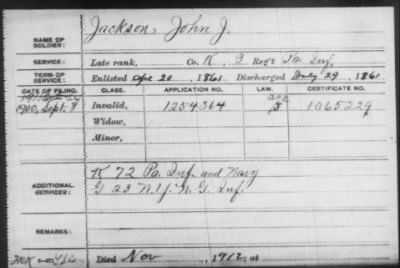 NAME OF SOLDIER: Jackson, John J.
SERVICE: Late rank, Co. K, 3 Reg't Pa. Inf.
TERM OF SERVICE: Enlisted Apr 20, 1861 Discharged July 29, 1861
DATE OF FILING. CLASS. APPLICATION NO. LAW. CERTIFICATE NO.
1900, Sept. 8 Invalid, 1254364 1065229
Widow,
Minor,
ADDITIONAL SERVICES: K 72 Pa. Inf. and Navy
G 23 N.Y. N.G. Inf.
REMARKS:
Died Nov , 1912, at